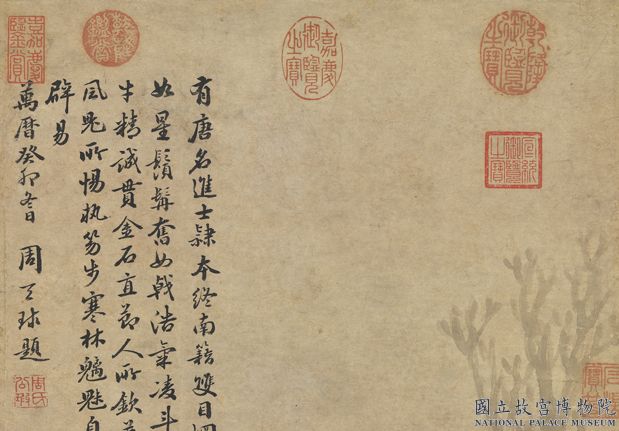 乾隆御覽之寶
嘉慶御覽之寶
乾隆鑑賞
嘉慶鑑賞
宣統御覽之寶
有唐名進士隸本終南籍雙目
如星鬚髯奮如戟浩氣凌斗
牛精誠貫金石直節人所欽
風鬼所惕執笏步寒林魑魅自
辟易
萬曆癸卯冬日 周天球題
周氏公瑕
國立故宮博物院
NATIONAL PALACE MUSEUM